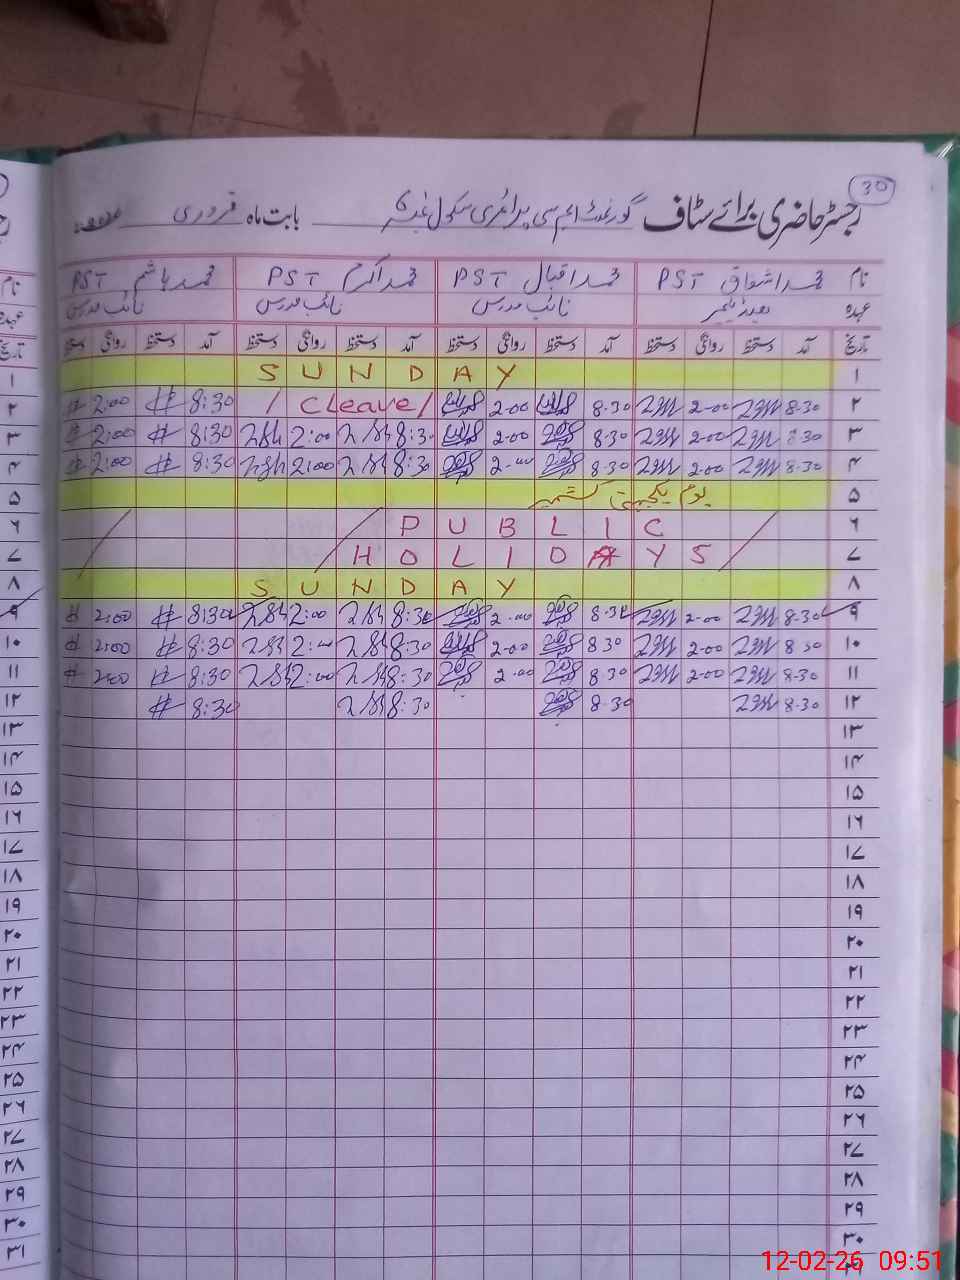 30
رجسٹر حاضری برائے سٹاف گورنمنٹ ایم سی پرائمری سکول بابت ماہ فروری
نام محمد اشفاق PST محمد اقبال PST محمد اکرم PST محمد ہاشم PST
عہدہ ہیڈ ٹیچر نائب مدرس نائب مدرس نائب مدرس
تاریخ آمد دستخط روانگی دستخط آمد دستخط روانگی دستخط آمد دستخط روانگی دستخط آمد دستخط روانگی دستخط
۱ SUNDAY
۲ 8-30 2-00 8-30 2-00 / Cleave / 8:30 2:00
۳ 8-30 2-00 8-30 2-00 8:30 2:00 8:30 2:00
۴ 8-30 2-00 8-30 2-00 8:30 2:00 8:30 2:00
۵ یوم یکجہتی کشمیر
۶ PUBLIC
۷ HOLIDAYS
۸ SUNDAY
۹ 8-30 2-00 8-30 2-00 8:30 2:00 8:30 2:00
۱۰ 8-30 2-00 8-30 2-00 8:30 2:00 8:30 2:00
۱۱ 8-30 2-00 8-30 2-00 8:30 2:00 8:30 2:00
۱۲ 8-30 8-30 8:30 8:30
۱۳
۱۴
۱۵
۱۶
۱۷
۱۸
۱۹
۲۰
۲۱
۲۲
۲۳
۲۴
۲۵
۲۶
۲۷
۲۸
۲۹
۳۰
12-02-26 09:51